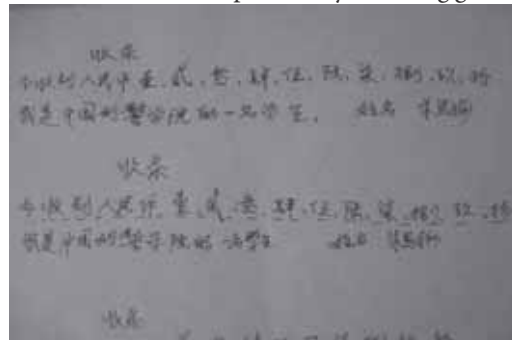 收条
今收到人民币壹、贰、叁、肆、伍、陆、柒、捌、玖、拾
我是中国刑警学院的一名学生。 姓名
收条
今收到人民币、壹、贰、叁、肆、伍、陆、柒、捌、玖、拾
我是中国刑警学院的一名学生 姓名
收条